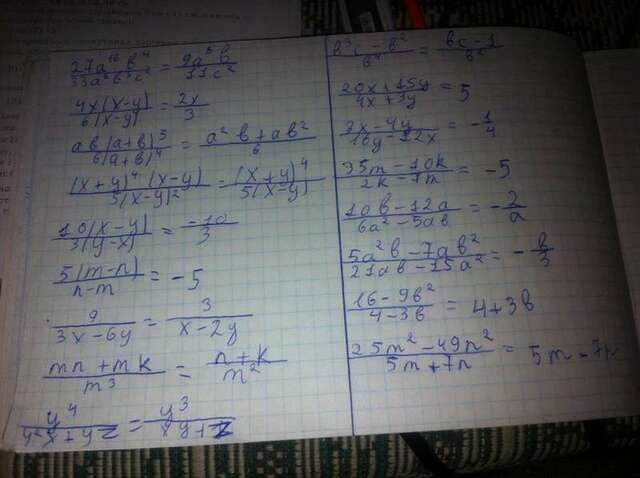 27a¹⁶b⁴/33a²b³c² = 9a⁸b/11c²
4x(x-y)/6(x-y) = 2x/3
ab(a+b)⁵/6(a+b)⁴ = a²b+ab²/6
(x+y)⁴(x-y)/5(x-y)² = (x+y)⁴/5(x-y)
10(x-y)/3(y-x) = -10/3
5(m-n)/n-m = -5
9/3x-6y = 3/x-2y
mn+mk/m³ = n+k/m²
y⁴/y²x+yz = y³/xy+z
b³c-b²/b⁴ = bc-1/b²
20x+15y/4x+3y = 5
3x-4y/16y-12x = -1/4
35m-10k/2k-7m = -5
10b-12a/6a²-5ab = -2/a
5a²b-7ab²/21ab-15a² = -b/3
16-9b²/4-3b = 4+3b
25m²-49n²/5m+7n = 5m-7n